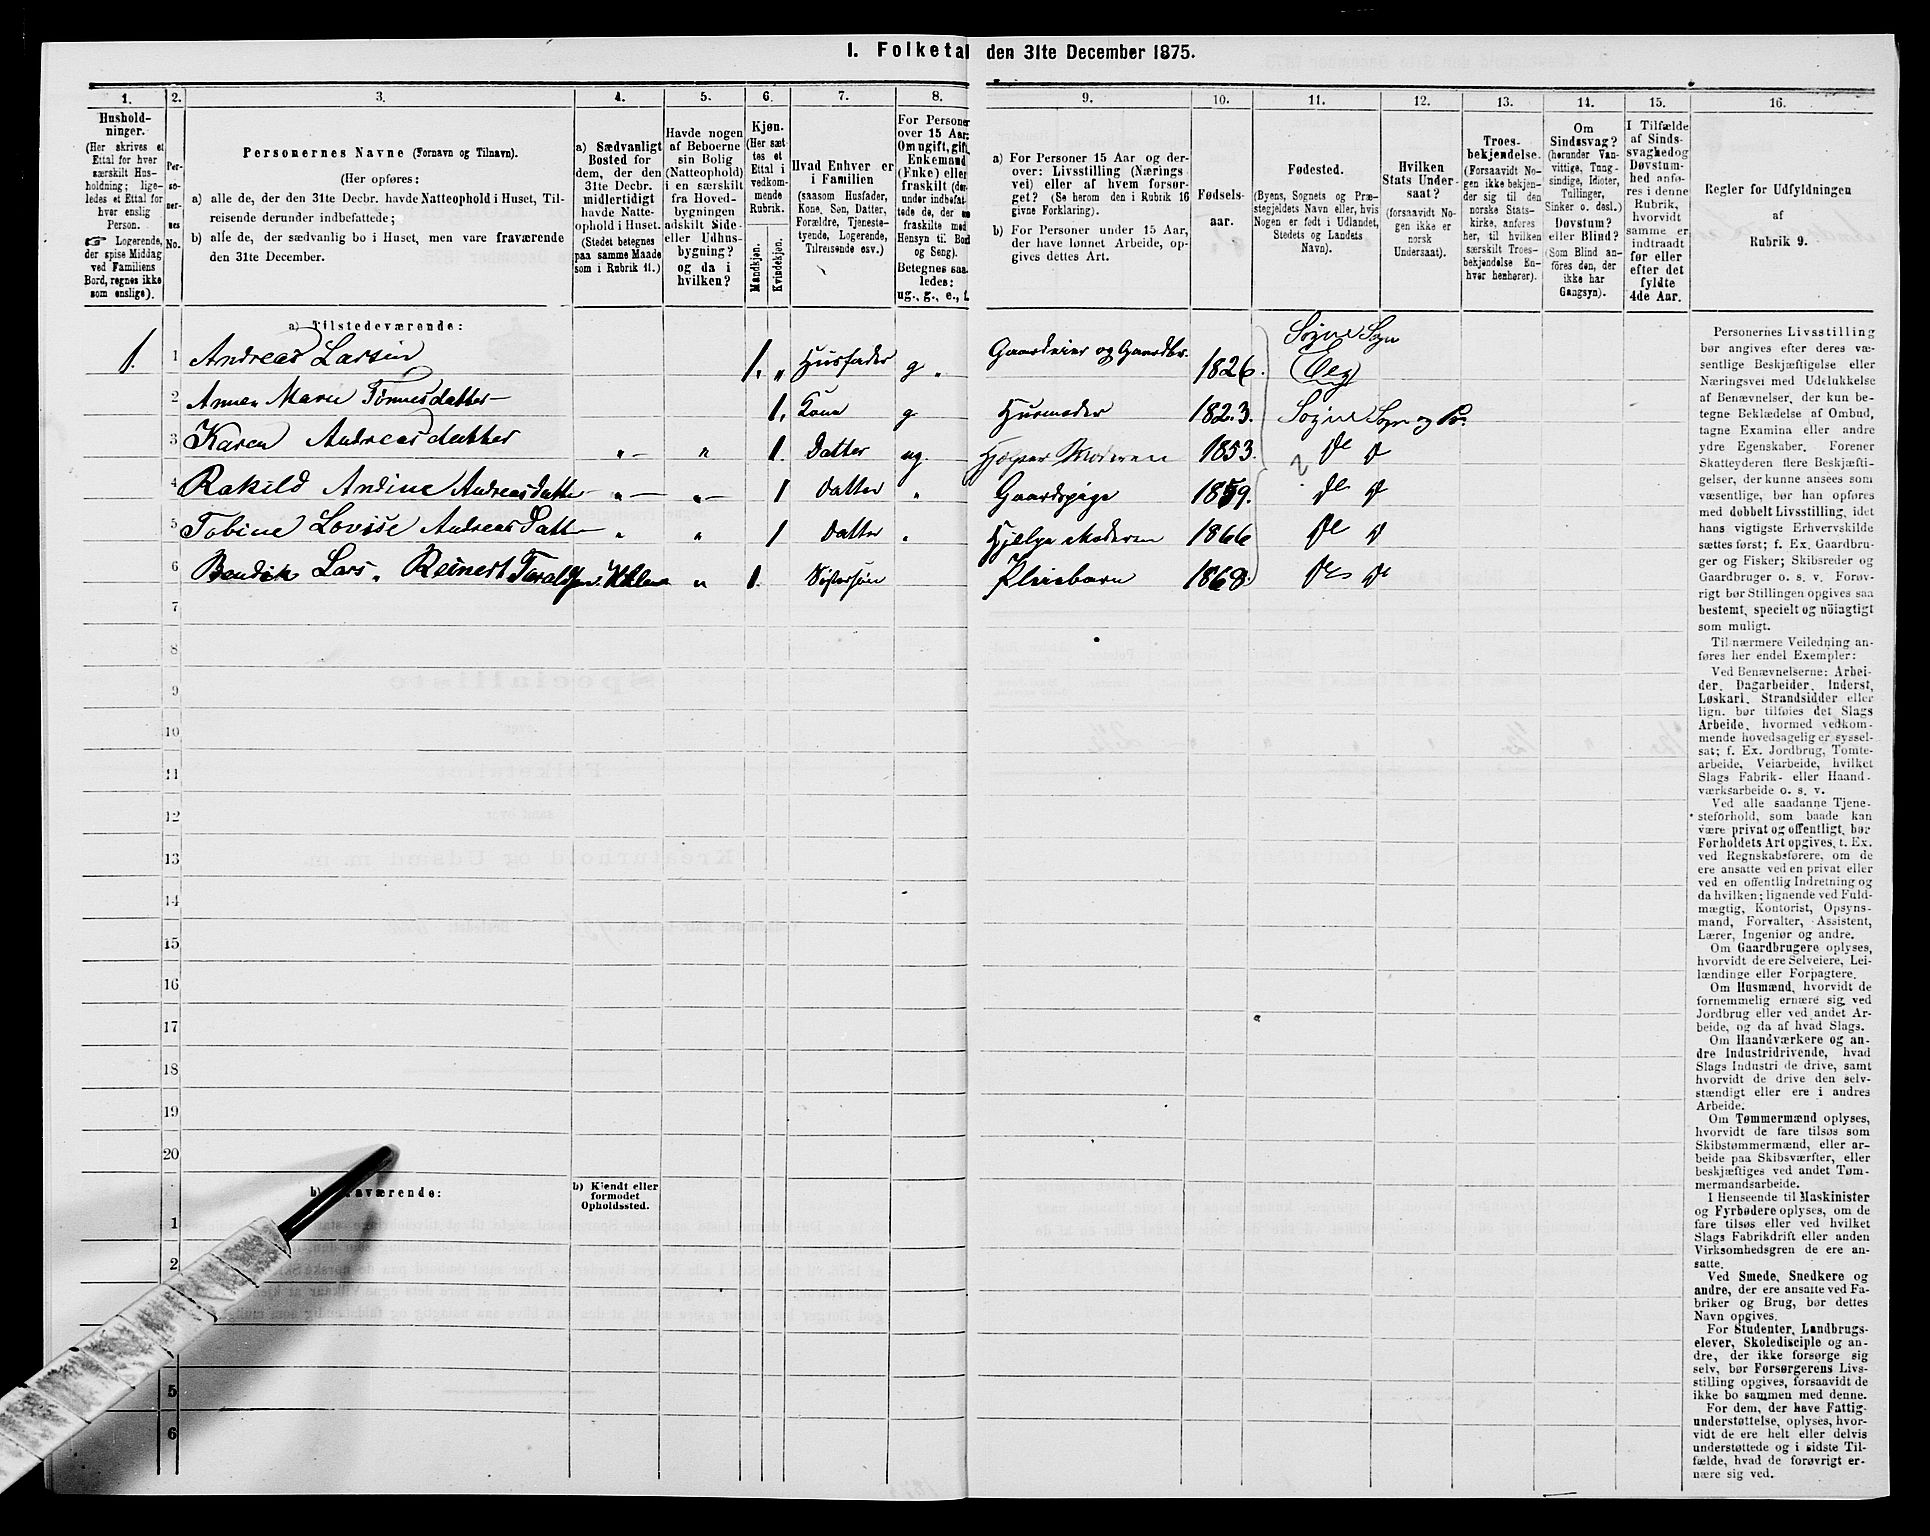 I. Folketal den 31te December 1875.
1. 2. 3. 4. 5. 6. 7. 8. 9. 10. 11. 12. 13. 14. 15. 16.
Hushold-
ninger.
(Her skrives et
Ettal for hver
særskilt Hus-
holdning; lige-
ledes et Ettal for
hver enslig
Person.
☞ Logerende,
der spise Middag
ved Familiens
Bord, regnes ikke
som enslige).
Per-
so-
ner-
nes
No.
Personernes Navne (Fornavn og Tilnavn).
(Her opføres:
a) alle de, der den 31te Decbr. havde Natteophold i Huset, Til-
reisende derunder indbefattede;
b) alle de, der sædvanlig bo i Huset, men vare fraværende
den 31te December.
a) Sædvanligt
Bosted for
dem, der den
31te Decbr.
midlertidigt
havde Natte-
ophold i Huset.
(Stedet betegnes
paa samme Maade
som i Rubrik 11.)
Havde nogen
af Beboerne
sin Bolig
(Natteophold)
i en særskilt
fra Hoved-
bygningen
adskilt Side-
eller Udhus-
bygning?
og da i
hvilken?
Kjøn.
(Her sæt-
tes et
Ettal i
vedkom-
mende
Rubrik.
Mandkjøn.
Kvindekjøn.
Hvad Enhver er
i Familien
(saasom Husfader,
Kone, Søn, Datter,
Forældre, Tjeneste-
tyende, Logerende,
Tilreisende osv.)
For Personer
over 15 Aar:
Om ugift, gift,
Enkemand
(Enke) eller
fraskilt (der-
under indbefat-
tede de, der ere
fraskilte med
Hensyn til Bord
og Seng).
Betegnes saa-
ledes:
ug., g., e., f.
a) For Personer 15 Aar og der-
over: Livsstilling (Nærings
vei) eller af hvem forsør-
get? (Se herom den i Rubrik 16
givne Forklaring).
b) For Personer under 15 Aar,
der have lønnet Arbeide, op-
gives dettes Art.
Fødsels-
aar.
Fødested.
(Byens, Sognets og Præ-
stegjeldets Navn eller, hvis
Nogen er født i Udlandet,
Stedets og Landets
Navn).
Hvilken
Stats Under-
saat?
(forsaavidt No-
gen ikke er
norsk
Undersaat).
Troes-
bekjendelse.
(Forsaavidt No-
gen ikke bekjen-
der sig til den
norske Stats-
kirke, anføres
her, til hvilken
særskilt Troes-
bekjendelse En-
hver henhører).
Om
Sindssvag?
(herunder Van-
vittige, Tung-
sindige, Idioter,
Tullinger,
Sinker o. desl.)
Døvstum?
eller Blind?
(Som Blind an-
føres den, der
ikke har
Gangsyn).
I Tilfælde
af Sinds-
svaghed og
Døvstum-
hed anfø-
res i denne
Rubrik,
hvorvidt
samme er
indtraadt
før eller
efter det
fyldte
4de Aar.
Regler for Udfyldningen
af
Rubrik 9.
a) Tilstedeværende:
1. 1 Andreas Larsen 1. „ Husfader g „ Gaardeier og Gaardbr. 1826. Sogne Sogn Eeg
2 Annen Marie Tørresdatter 1. Kone g Husmoder 1823. Sogne Sogn og Pr.
3 Karen Andreasdatter „ „ 1. Datter ug. Hjelper Moderen 1853. D D
4 Rakild Andine Andreasdatter „ „ 1 Datter „ Gaardspige 1859. D D
5 Tobine Lovise Andreas Datt „ „ 1 Datter „ Hjelper Moderen 1866 D D
6 Bendik Lars. Reinert Taraldsen. „ 1. Søstersøn Pleiebarn 1868. D D
7
8
9
10
11
12
13
14
15
16
17
18
19
20
b) Fraværende:
b) Kjendt eller
formodet
Opholdssted.
1
2
5
6
Personernes Livsstilling
bør angives efter deres væ-
sentlige Beskjæftigelse eller
Næringsvei med Udelukkelse
af Benævnelser, der kun be-
tegne Beklædelse af Ombud,
tagne Examina eller andre
ydre Egenskaber. Forener
Skatteyderen flere Beskjæfti-
gelser, der kunne ansees som
væsentlige, bør han opføres
med dobbelt Livsstilling, idet
hans vigtigste Erhvervskilde
sættes først; f. Ex. Gaardbru-
ger og Fisker; Skibsreder og
Gaardbruger o. s. v. Forøv-
rigt bør Stillingen opgives saa
bestemt, specielt og nøiagtigt
som muligt.
Til nærmere Veiledning an-
føres her endel Exempler:
Ved Benævnelserne: Arbei-
der, Dagarbeider, Inderst,
Løskarl, Strandsidder eller
lign. bør tilføies det Slags
Arbeide, hvormed vedkom-
mende hovedsagelig er syssel-
sat; f. Ex. Jordbrug, Tomte-
arbeide, Veiarbeide, hvilket
Slags Fabrik- eller Haand-
værksarbeide o. s. v.
Ved alle saadanne Tjene-
steforhold, som baade kan
være privat og offentligt, bør
Forholdets Art opgives, t. Ex.
ved Regnskabsførere, om de
ere ansatte ved en privat eller
ved en offentlig Indretning og
da hvilken; lignende ved Fuld-
mægtig, Kontorist, Opsyns-
mand, Forvalter, Assistent,
Lærer, Ingeniør og andre.
Om Gaardbrugere oplyses,
hvorvidt de ere Selveiere, Lei-
lændinge eller Forpagtere.
Om Husmænd, hvorvidt de
fornemmelig ernære sig ved
Jordbrug eller ved andet Ar-
beide, og da af hvad Slags.
Om Haandværkere og an-
dre Industridrivende, hvad
Slags Industri de drive, samt
hvorvidt de drive den selv-
stændigt eller ere i andres
Arbeide.
Om Tømmermænd oplyses,
hvorvidt de fare tilsøs som
Skibstømmermænd, eller ar-
beide paa Skibsværfter, eller
beskjæftiges ved andet Tøm-
mermandsarbeide.
I Henseende til Maskinister
og Fyrbødere oplyses, om de
fare tilsøs eller ved hvilket
Slags Fabrikdrift eller anden
Virksomhedsgren de ere an-
satte.
Ved Smede, Snedkere og
andre, der ere ansatte ved Fa-
briker og Brug, bør dettes
Navn opgives.
For Studenter, Landbrugs-
elever, Skoledisciple og an-
dre, der ikke forsørge sig
selv, bør Forsørgerens Livs-
stilling opgives, forsaavidt de
ikke bo sammen med denne.
For dem, der have Fattig-
understøttelse, oplyses, hvor-
vidt de ere helt eller delvis
understøttede og i sidste Til-
fælde, hvad de forøvrigt er-
nære sig ved.